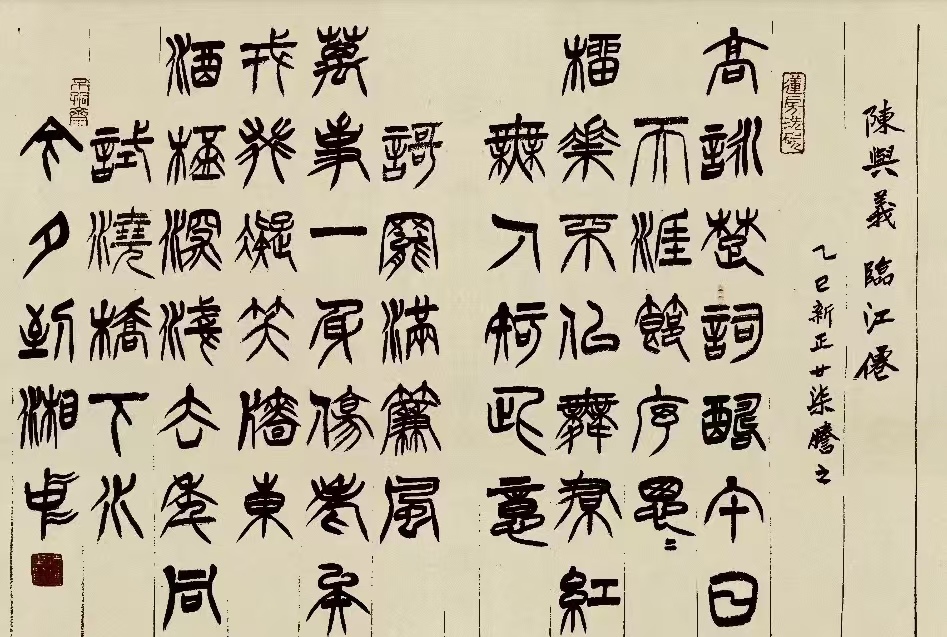 陳與義 臨江僊
乙巳新正廿柒騰之
高詠楚詞酬午日
天涯節序悤〻
榴華不佀舞帬紅
無人知此意
謌罷滿簾風
萬事一身傷老矣
戎葵凝笑牆東
酒桮深淺去年同
試澆橋下水
今夕到湘中